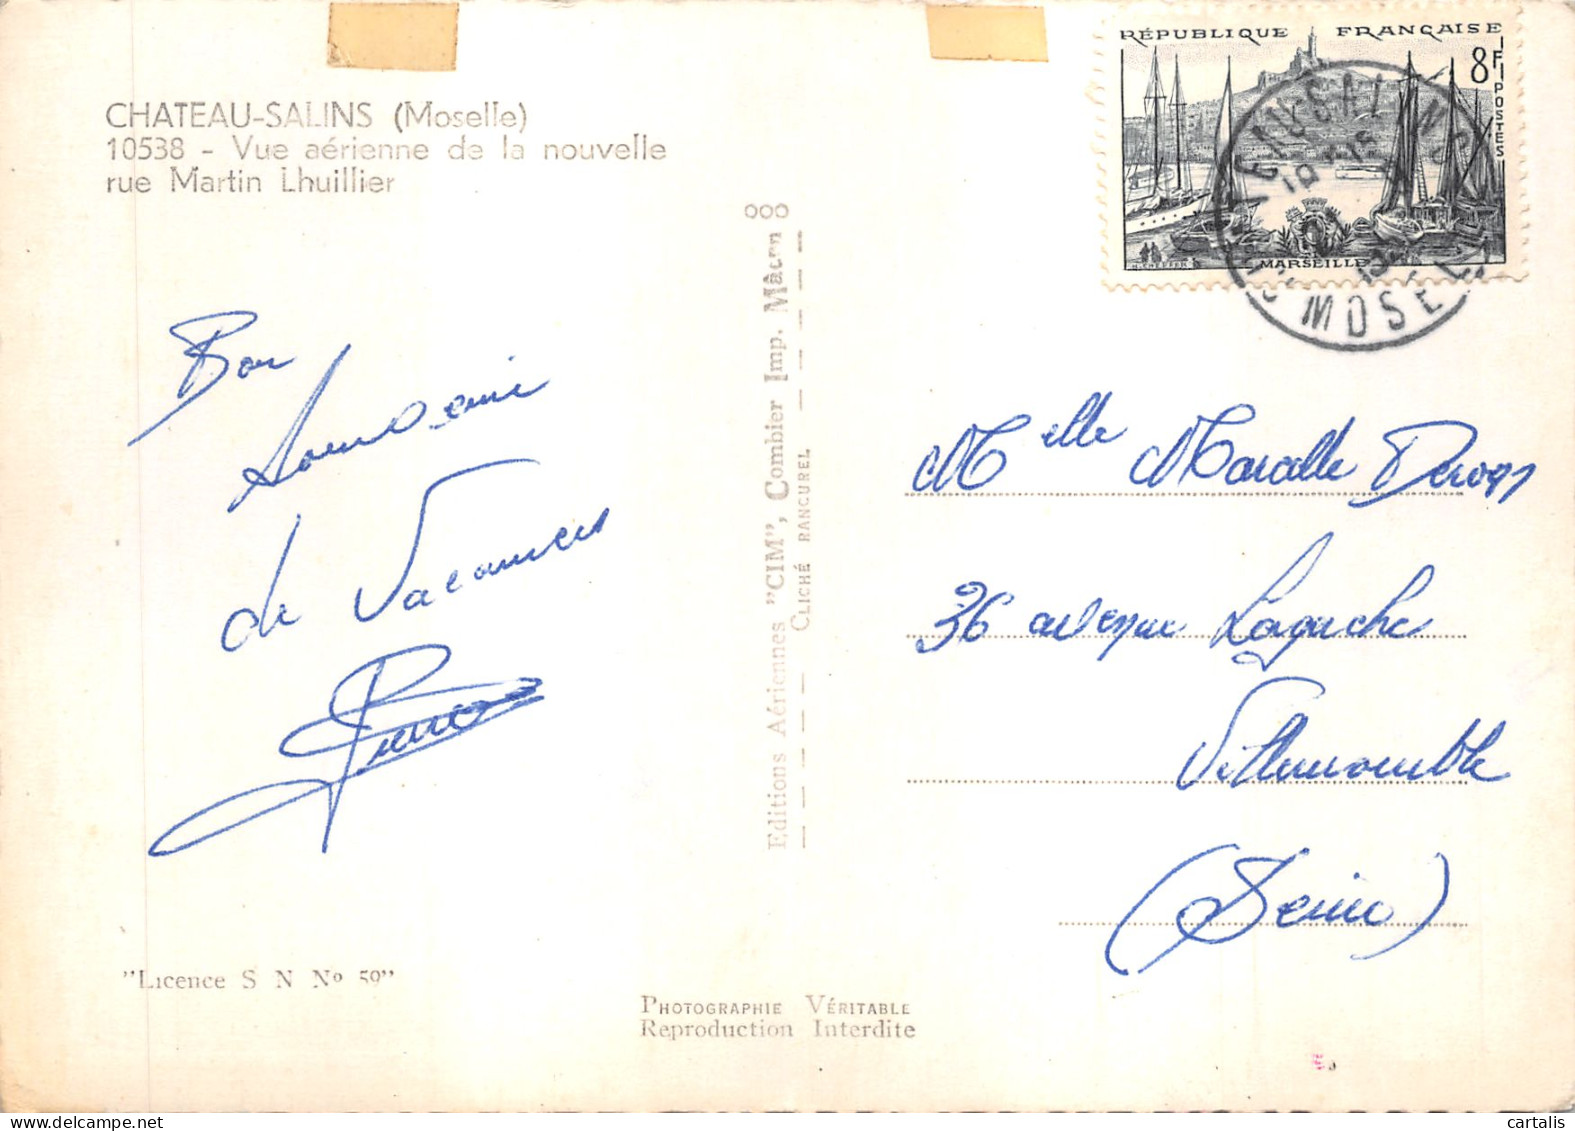 CHATEAU-SALINS (Moselle)
10538 - Vue aérienne de la nouvelle
rue Martin Lhuillier
Bon
souvenir
de Vacances
"Licence S N Nº 59"
Editions Aériennes "CIM", Combier Imp. Mâcon
CLICHÉ RANCUREL
PHOTOGRAPHIE VÉRITABLE
Reproduction Interdite
RÉPUBLIQUE FRANÇAISE
8F
POSTES
MARSEILLE
MOSELLE
Melle
36 avenue Laguche
Villemomble
(Seine)
cartalis